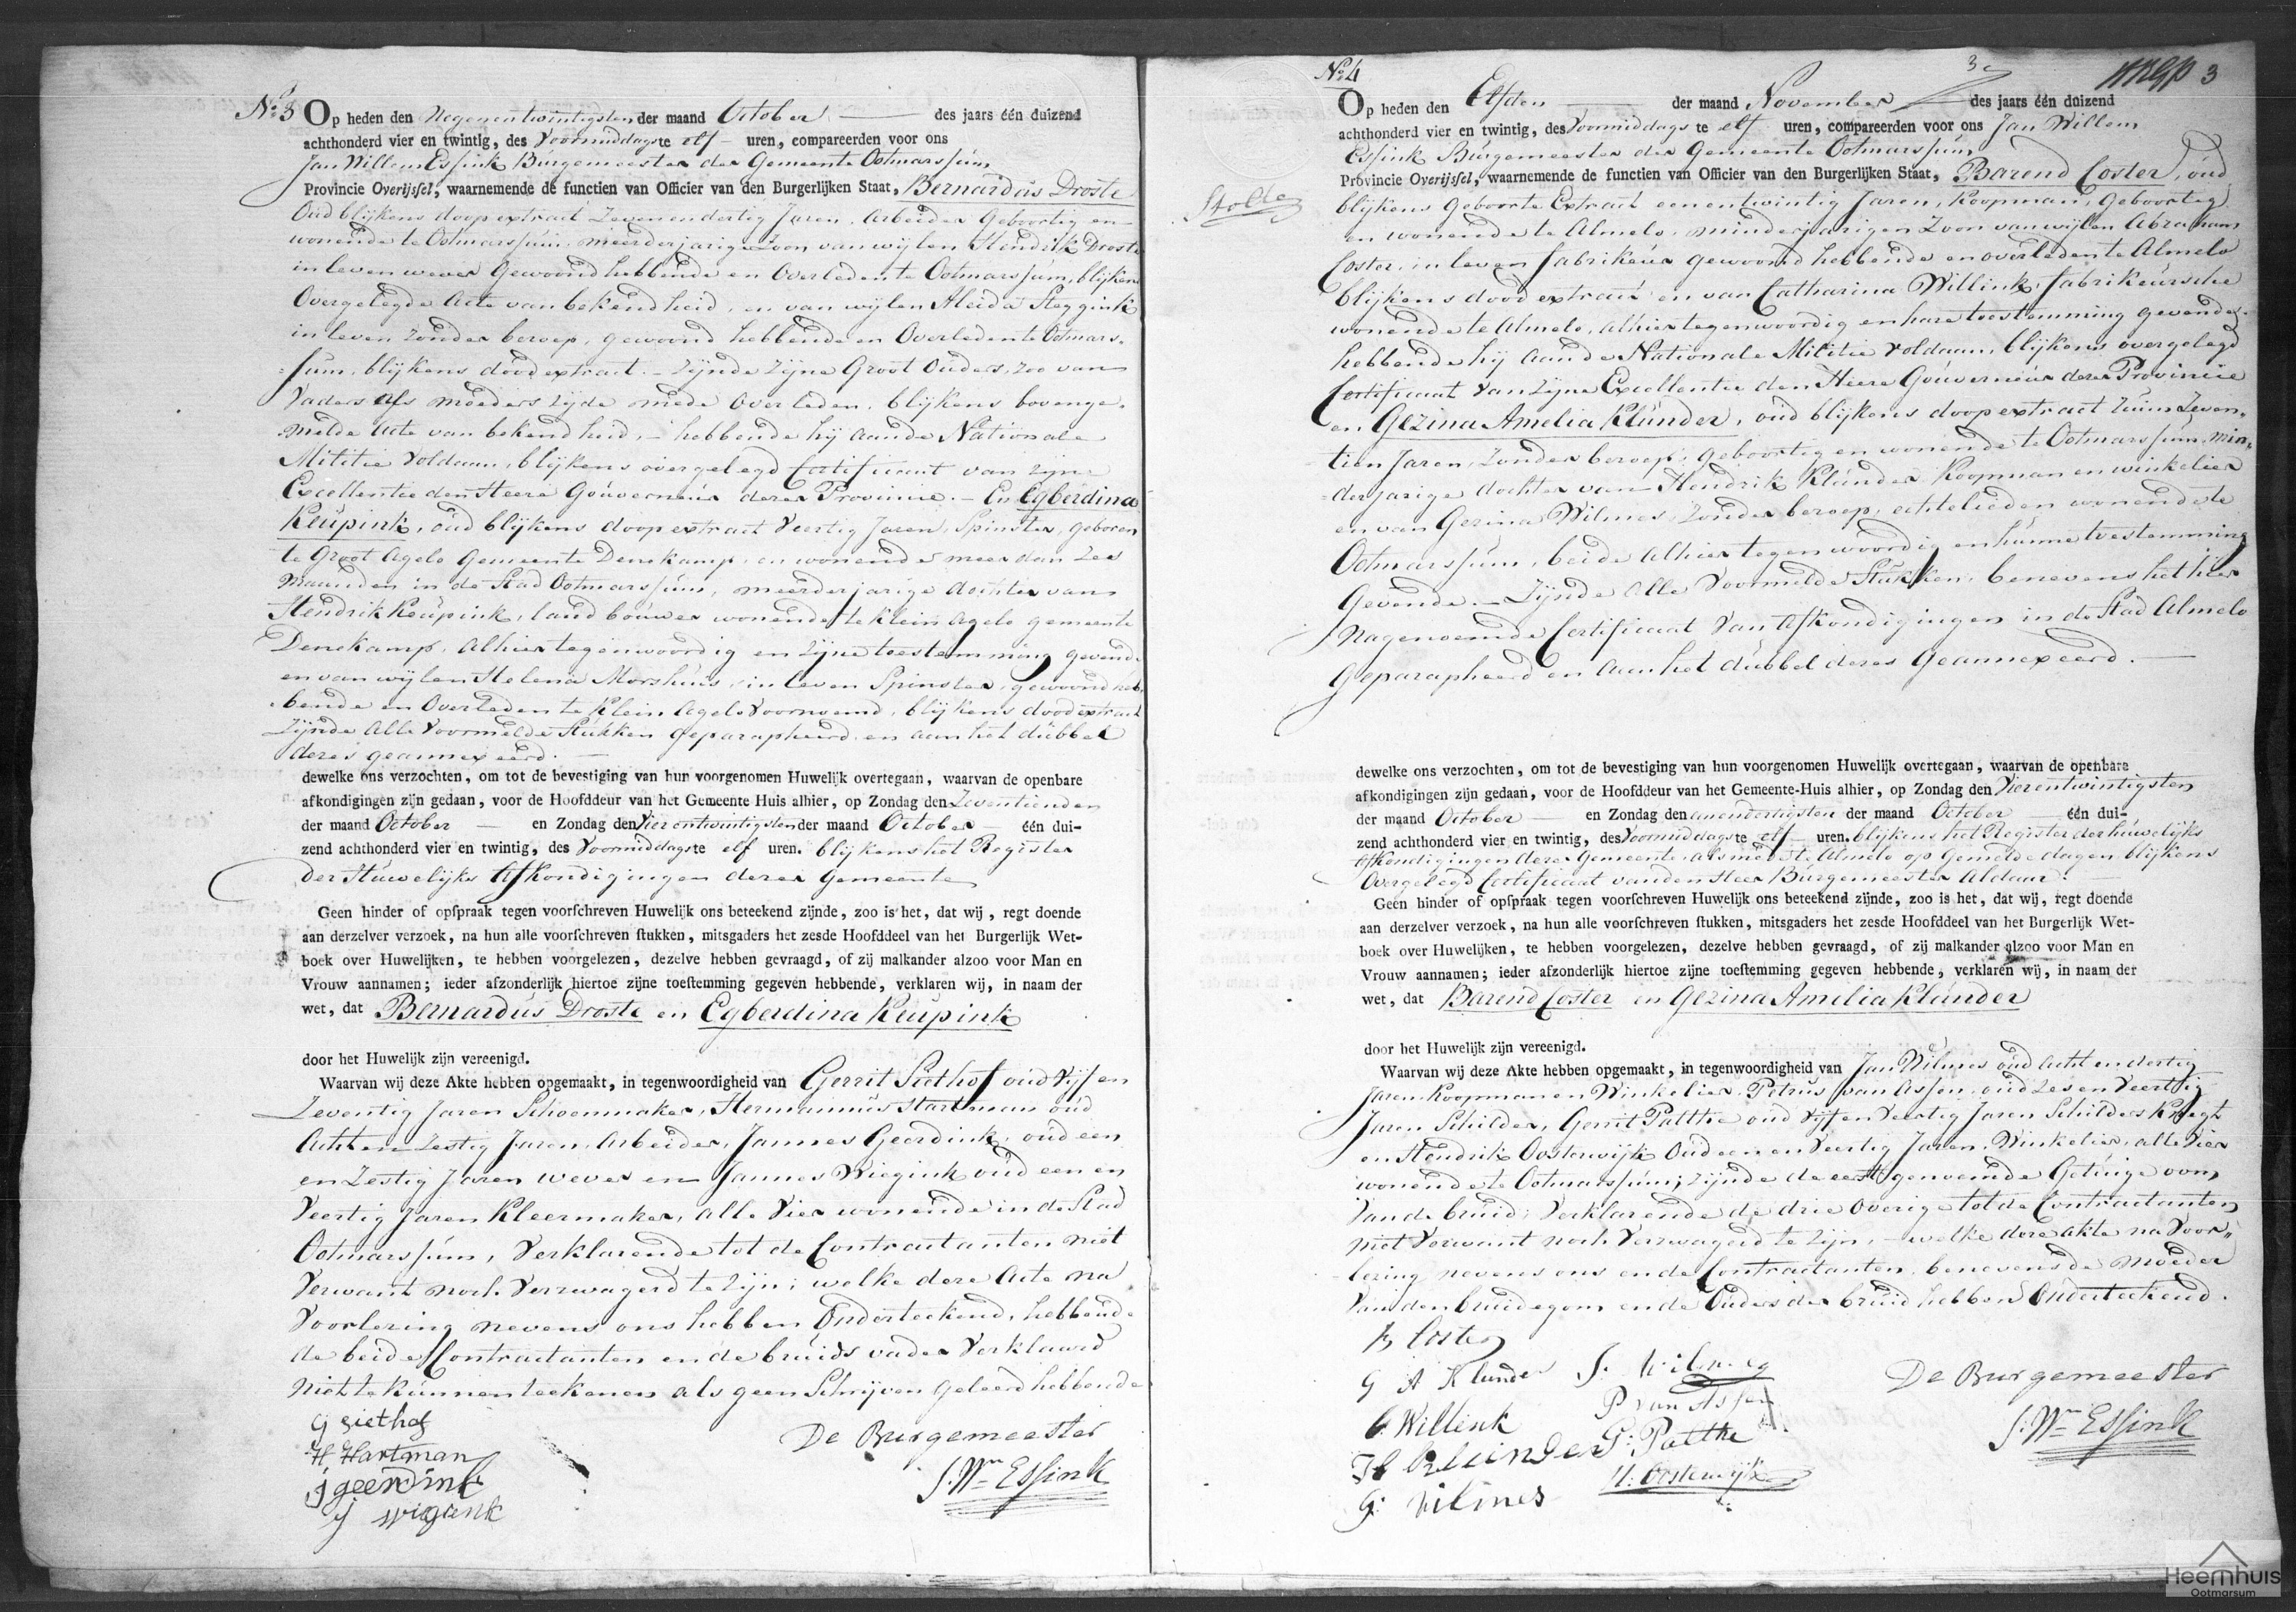 No 3 Op heden den Negenentwintigsten der maand October des jaars één duizend
achthonderd vier en twintig, des Voormiddags te elf uren, compareerden voor ons
Jan Willem Essink Burgemeester der Gemeente Ootmarssum
Provincie Overijssel, waarnemende de functien van Officier van den Burgerlijken Staat, Bernardus Droste
Oud blijkens doopextract Zevenendertig Jaren, Arbeider Geboortig en
wonende te Ootmarssum, meerderjarige Zoon van wijlen Hendrik Droste
in leven wever Gewoond hebbende en Overleden te Ootmarssum, blijkens
Overgelegde Acte van bekendheid, en van wijlen Aleida Steggink
in leven zonder beroep, gewoond hebbende en Overleden te Ootmars-
sum, blijkens doodextract. – Zijnde Zijne Groot Ouders, Zoo van
Vaders als moeders zijde mede Overleden, blijkens bovenge-
melde Acte van bekendheid, – hebbende hij aan de Nationale
Militie Voldaan, blijkens overgelegd Certificaat van Zijne
Excellentie den Heere Gouverneur dezer Provincie. – En Egberdina
Keupink, oud blijkens doopextract Veertig Jaren, Spinster, geboren
te Groot Agelo Gemeente Denekamp, en wonende meer dan Zes
Maanden in de Stad Ootmarssum, meerderjarige dochter van
Hendrik Keupink, landbouwer wonende te Klein Agelo gemeente
Denekamp, alhier tegenwoordig en zijne toestemming gevende
en van wijlen Helena Morshuis, in leven Spinster, gewoond heb-
bende en Overleden te Klein Agelo Voornoemd, blijkens doodextract
Zijnde Alle Voormelde Stukken geparapheerd en aan het dubbel
dezes geannexeerd.
dewelke ons verzochten, om tot de bevestiging van hun voorgenomen Huwelijk overtegaan, waarvan de openbare
afkondigingen zijn gedaan, voor de Hoofddeur van het Gemeente Huis alhier, op Zondag den Zeventienden
der maand October en Zondag den Vierentwintigsten der maand October één dui-
zend achthonderd vier en twintig, des Voormiddags te elf uren. blijkens het Register
der Huwelijks Afkondigingen dezer Gemeente
Geen hinder of opspraak tegen voorschreven Huwelijk ons beteekend zijnde, zoo is het, dat wij, regt doende
aan derzelver verzoek, na hun alle voorschreven stukken, mitsgaders het zesde Hoofddeel van het Burgerlijk Wet-
boek over Huwelijken, te hebben voorgelezen, dezelve hebben gevraagd, of zij malkander alzoo voor Man en
Vrouw aannamen; ieder afzonderlijk hiertoe zijne toestemming gegeven hebbende, verklaren wij, in naam der
wet, dat Bernardus Droste en Egberdina Keupink
door het Huwelijk zijn vereenigd.
Waarvan wij deze Akte hebben opgemaakt, in tegenwoordigheid van Gerrit Siethof oud Vijf en
Zeventig Jaren Schoenmaker, Hermannus Hartman oud
Acht en Zestig Jaren, Arbeider, Jannes Geerdink, oud een
en Zestig Jaren wever en Jannes Wiegink oud een en
Veertig Jaren Kleermaker, alle Vier wonende in de Stad
Ootmarssum, Verklarende tot de Contractanten niet
Verwant noch Verzwagerd te Zijn; welke deze Acte na
Voorlezing nevens ons hebben Onderteekend, hebbende
de beide Contractanten en de bruids vader Verklaard
niet te kunnen teekenen als geen Schrijven geleerd hebbende
G Siethof
H Hartman
j geerdink
j wiggink
De Burgemeester
J. Wm Essink
No 4
3e
3
Stolle
Op heden den Elfden der maand November des jaars één duizend
achthonderd vier en twintig, des Voormiddags te elf uren, compareerden voor ons Jan Willem
Essink Burgemeester der Gemeente Ootmarssum
Provincie Overijssel, waarnemende de functien van Officier van den Burgerlijken Staat, Barend Coster, oud
blijkens Geboorte Extract eenentwintig Jaren, Koopman, Geboortig
en wonende te Almelo, minderjarigen Zoon van wijlen Abraham
Coster, in leven fabrikeur gewoond hebbende en overleden te Almelo
blijkens doodextract en van Catharina Willink, fabrikeursche
wonende te Almelo, alhier tegenwoordig en hare toestemming gevende.
hebbende hij aan de Nationale Militie voldaan, blijkens overgelegd
Certificaat van Zijne Excellentie den Heere Gouverneur dezer Provincie
en Gezina Amelia Klunder, oud blijkens doopextract ruim Zeven-
tien Jaren, Zonder beroep, geboortig en wonende te Ootmarssum, min-
derjarige dochter van Hendrik Klunder Koopman en winkelier
en van Gezina Wilmes, Zonder beroep, echtelieden wonende te
Ootmarssum, beide Alhier tegenwoordig en hunne toestemming
Gevende. – Zijnde Alle Voormelde Stukken, benevens het hier
nagenoemde Certificaat van Afkondigingen in de Stad Almelo
Geparapheerd en aan het dubbel dezes Geannexeerd. –
dewelke ons verzochten, om tot de bevestiging van hun voorgenomen Huwelijk overtegaan, waarvan de openbare
afkondigingen zijn gedaan, voor de Hoofddeur van het Gemeente-Huis alhier, op Zondag den Vierentwintigsten
der maand October en Zondag den eenendertigsten der maand October één dui-
zend achthonderd vier en twintig, des Voormiddags te elf uren. blijkens het Register der huwelijks
Afkondigingen dezer Gemeente, alsmede te Almelo op Gemelde dagen blijkens
Overgelegd Certificaat van den Heer Burgemeester Aldaar.
Geen hinder of opspraak tegen voorschreven Huwelijk ons beteekend zijnde, zoo is het, dat wij, regt doende
aan derzelver verzoek, na hun alle voorschreven stukken, mitsgaders het zesde Hoofddeel van het Burgerlijk Wet-
boek over Huwelijken, te hebben voorgelezen, dezelve hebben gevraagd, of zij malkander alzoo voor Man en
Vrouw aannamen; ieder afzonderlijk hiertoe zijne toestemming gegeven hebbende, verklaren wij, in naam der
wet, dat Barend Coster en Gezina Amelia Klunder
door het Huwelijk zijn vereenigd.
Waarvan wij deze Akte hebben opgemaakt, in tegenwoordigheid van Jan Wilmes oud Acht en dertig
Jaren Koopman en Winkelier, Petrus van Assen, oud Zes en Veertig
Jaren Schilder, Gerrit Palthe oud Vijf en Veertig Jaren Schilders Knegt
en Hendrik Oosterwijk Oud een en Veertig Jaren, Winkelier, alle Vier
wonende te Ootmarssum, Zijnde de eerst genoemde Getuige oom
Van de bruid; Verklarende de drie Overige tot de Contractanten
niet Verwant noch Verzwagerd te Zijn, – welke deze akte na Voor-
lezing nevens ons en de Contractanten, benevens de moeder
Van den bruidegom en de Ouders der bruid hebben Onderteekend.
B Coster
G A Klunder
C. Willink
H Klunder
G: Wilmes
J. Wilmes
P van Assen
G: Palthe
H. Oosterwijk
De Burgemeester
J. Wm Essink
Heemhuis
Ootmarsum